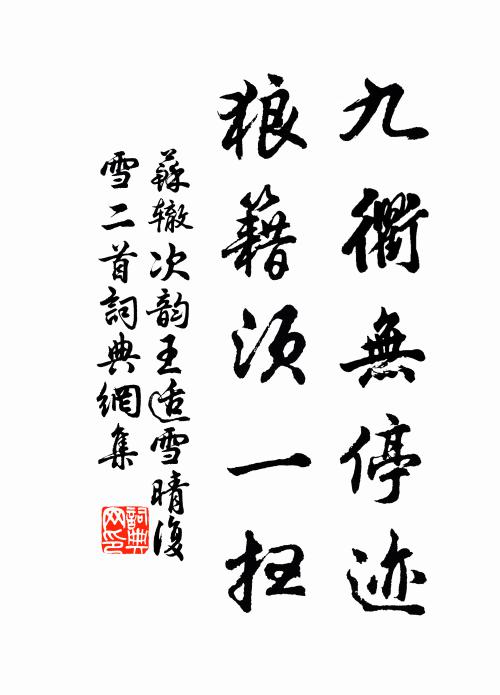 九衢無停迹
狼籍须一扫
蘇辙次韵王适雪晴復
雪二首詞典網集
詞典网印